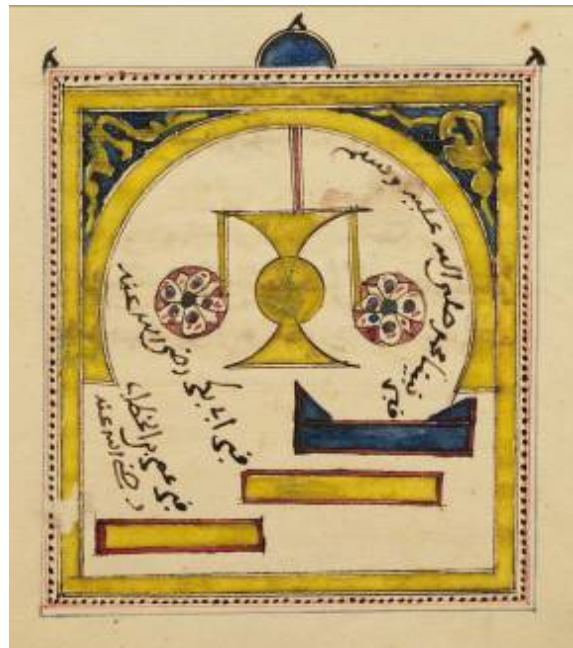 قبر نبينا محمد صلى الله عليه وسلم
قبر أبي بكر رضي الله عنه
قبر عمر بن الخطاب
رضي الله عنه